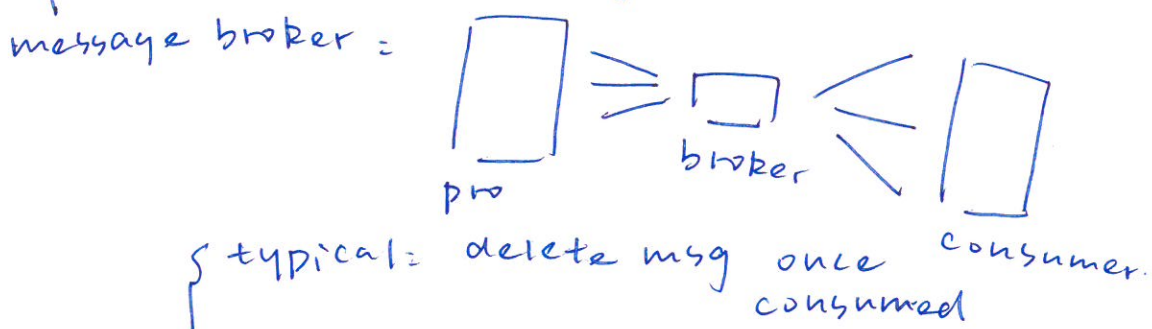 message broker:
broker
pro
consumer.
typical: delete msg once
consumed